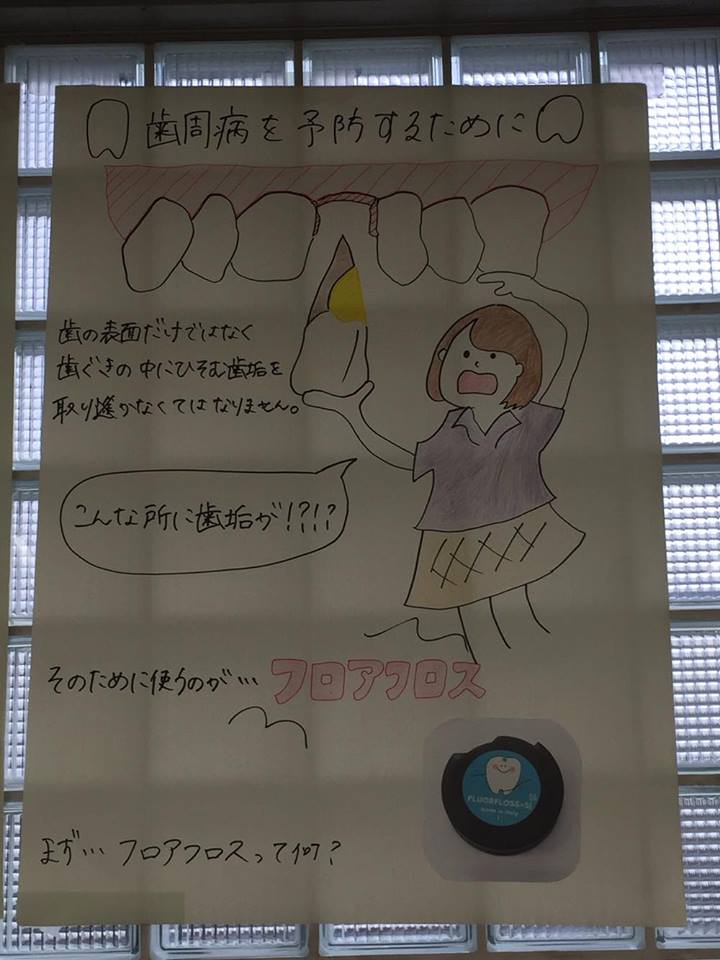 歯周病を予防するために
歯の表面だけではなく
歯ぐきの中にひそむ歯垢を
取り除かなくてはなりません。
こんな所に歯垢が!?!?
そのために使うのが…フロアフロス
FLUORFLOSS
Made in Italy
まず…フロアフロスって何?